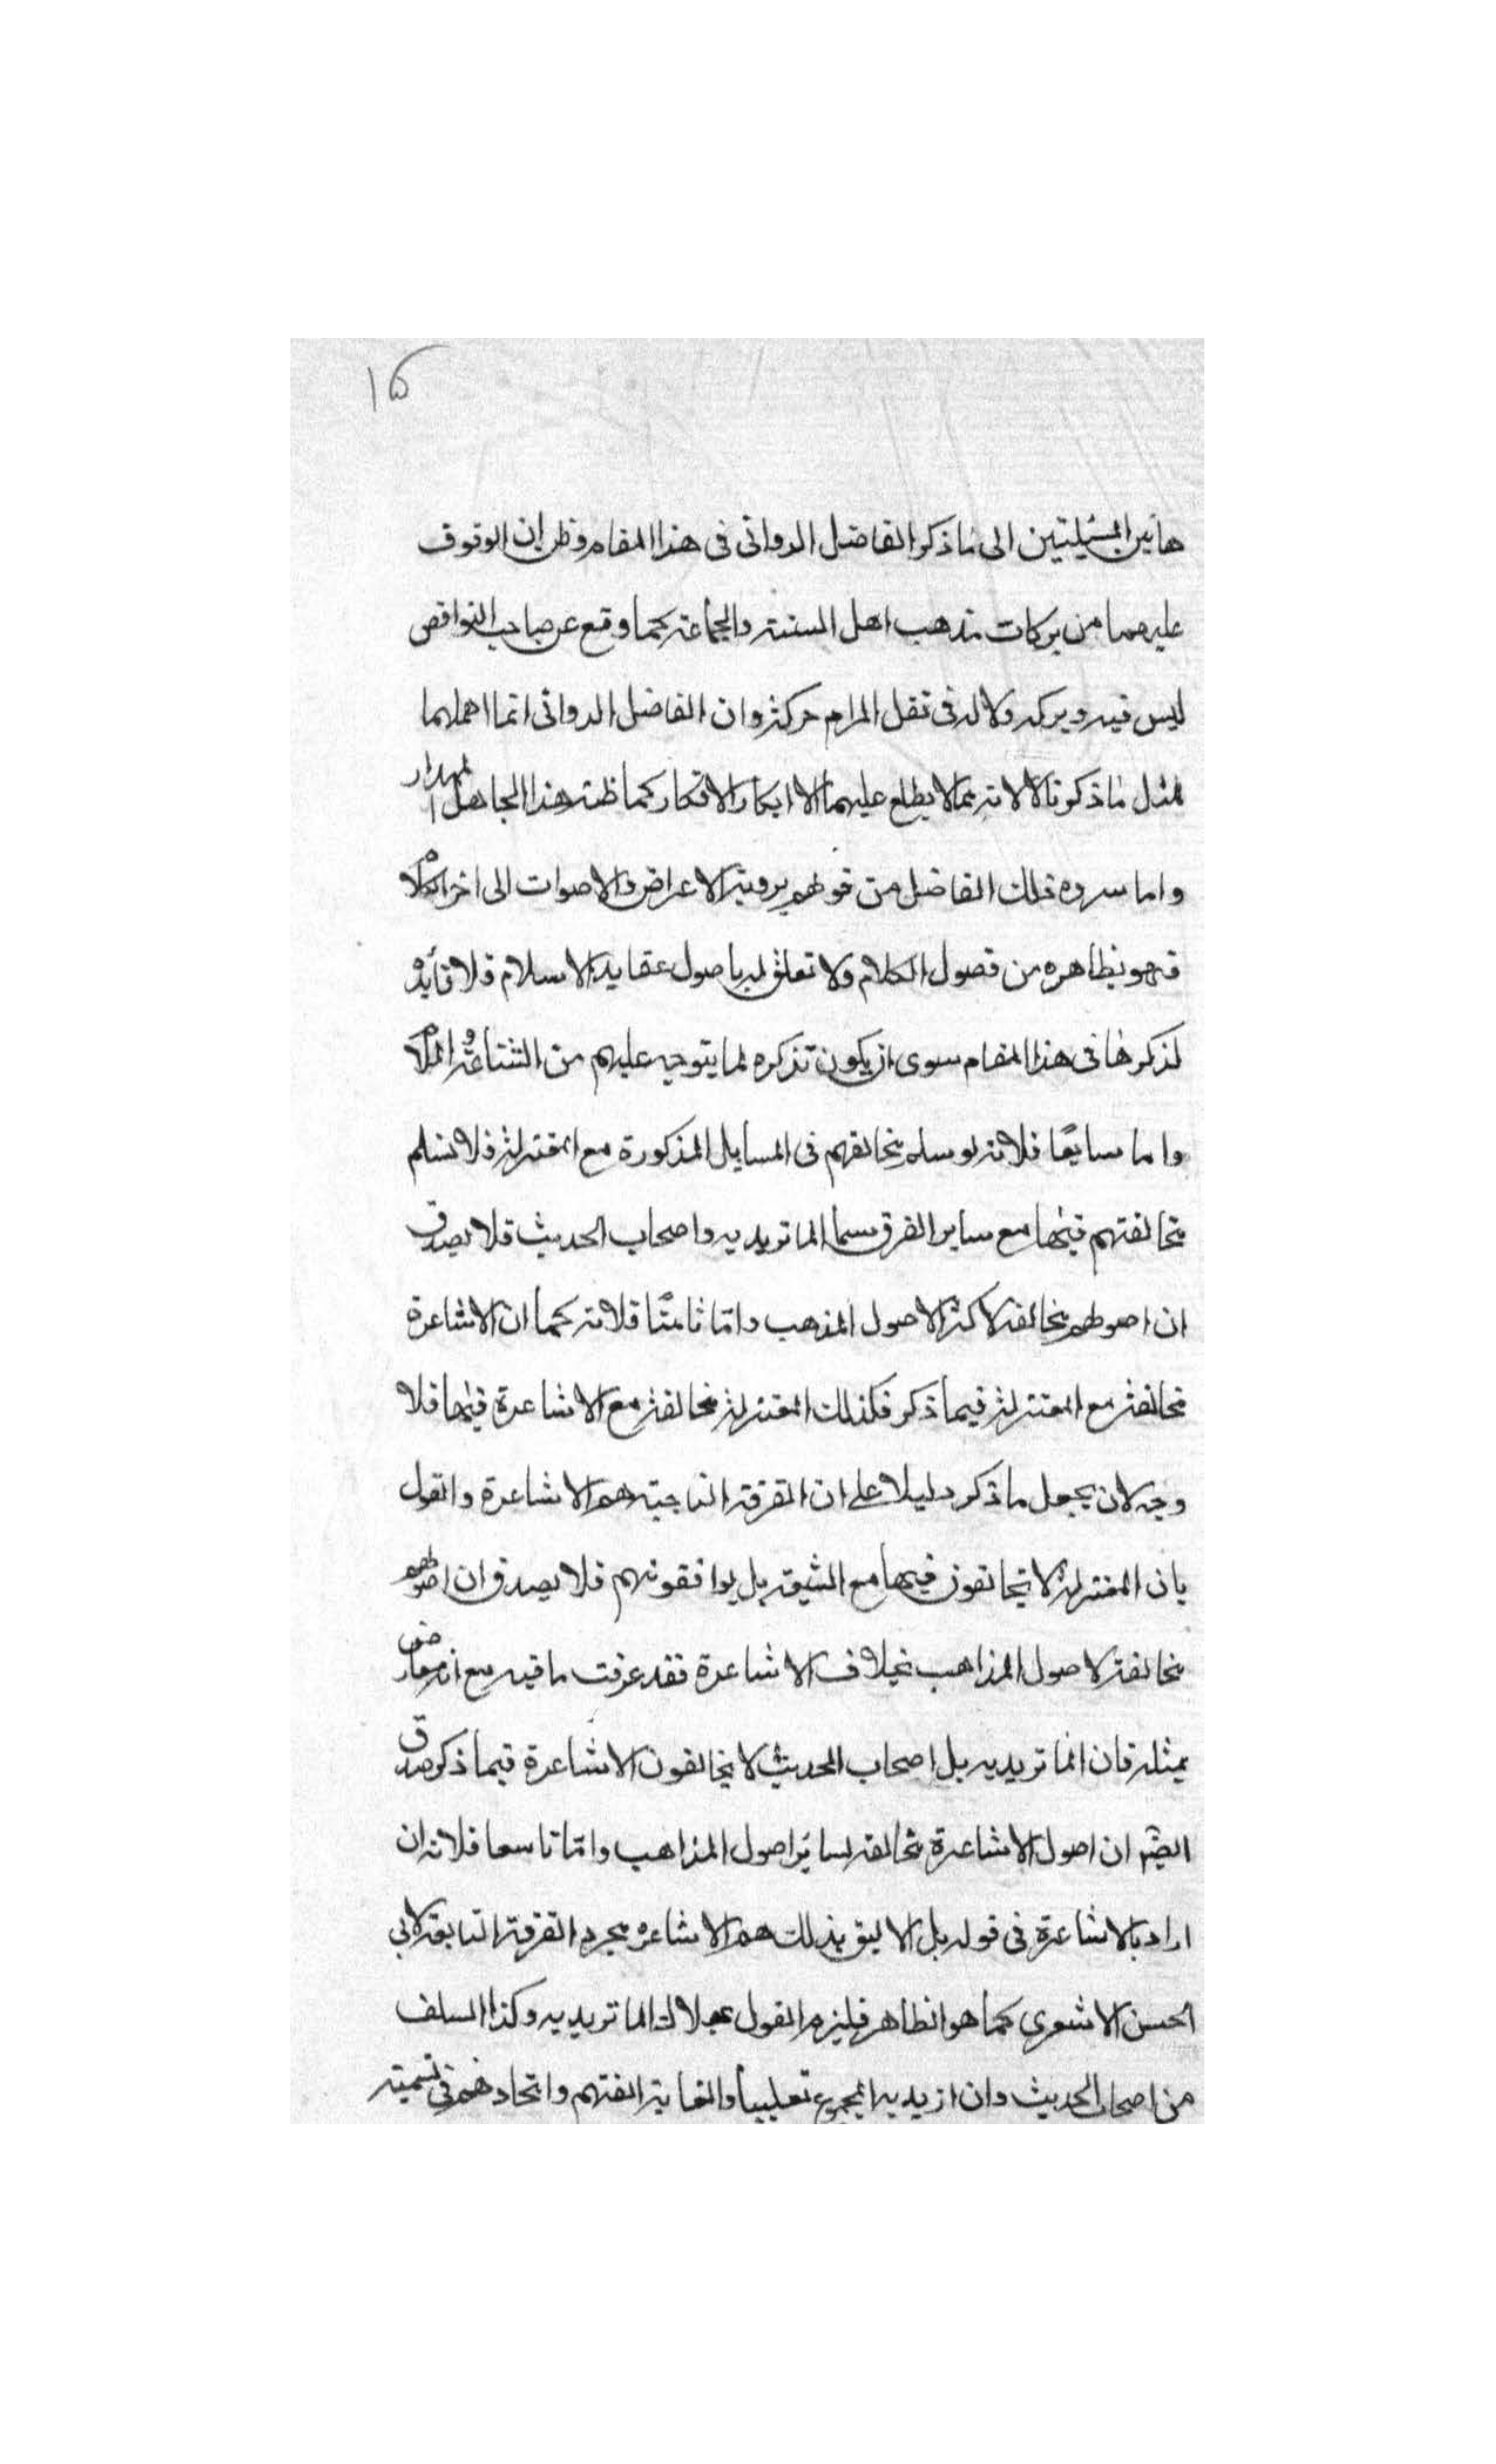 ١٥
هاتين المسئلتين الى ما ذكر الفاضل الدوانى فى هذا المقام وظن ان الوقوف
عليهما من بركات مذهب اهل السنة والجماعة كما وقع عن صاحب النواقض
ليس فيه ويركه ولا له فى نقل المرام حركة وان الفاضل الدوانى انما اهملهما
لمثل ما ذكرنا لا لانه مما لا يطلع عليهما الا ابكار الافكار كما ظنه هذا الجاهل المهدار
واما سرده ذلك الفاضل من قولهم برؤية الاعراض والاصوات الى اخر الكلام
فهو بظاهره من فضول الكلام ولا تعلق له باصول عقايد الاسلام فلا فأيدة
لذكرها فى هذا المقام سوى ان يكون تذكره لما يتوجه عليهم من الشناعة والملام
واما سابعًا فلانه لو سلم مخالفتهم فى المسايل المذكورة مع المعتزلة فلا نسلم
مخالفتهم فيها مع ساير الفرق سيما الماتريديه واصحاب الحديث فلا يصدق
ان اصولهم مخالفة لاكثر الاصول المذهب وامّا ثامنًا فلانه كما ان الاشاعرة
مخالفة مع المعتزلة فيما ذكر فكذلك المعتزلة مخالفة مع الاشاعرة فيها فلا
وجه لان يجعل ما ذكر دليلا على ان الفرقة الناجية هم الاشاعرة والقول
بان المعتزلة لا يخالفون فيها مع الشيعة بل يوافقونهم فلا يصدق ان اصولهم
مخالفة لاصول المذاهب بخلاف الاشاعرة فقد عرفت ما فيه مع انه معارض
بمثله فان الماتريديه بل اصحاب الحديث لا يخالفون الاشاعرة فيما ذكر صدق
ايضًا ان اصول الاشاعرة مخالفة لسائر اصول المذاهب وامّا تاسعا فلانه ان
اراد بالاشاعرة فى قوله بل الاليق بذلك هم الاشاعرة مجرد الفرقة التابعة لابي
الحسن الاشعري كما هو الظاهر فيلزم القول بهلاك الماتريديه وكذا السلف
من اصحاب الحديث وان اريد به المجموع تغليبا ولغاية الفتهم واتحادهم فى تسمية